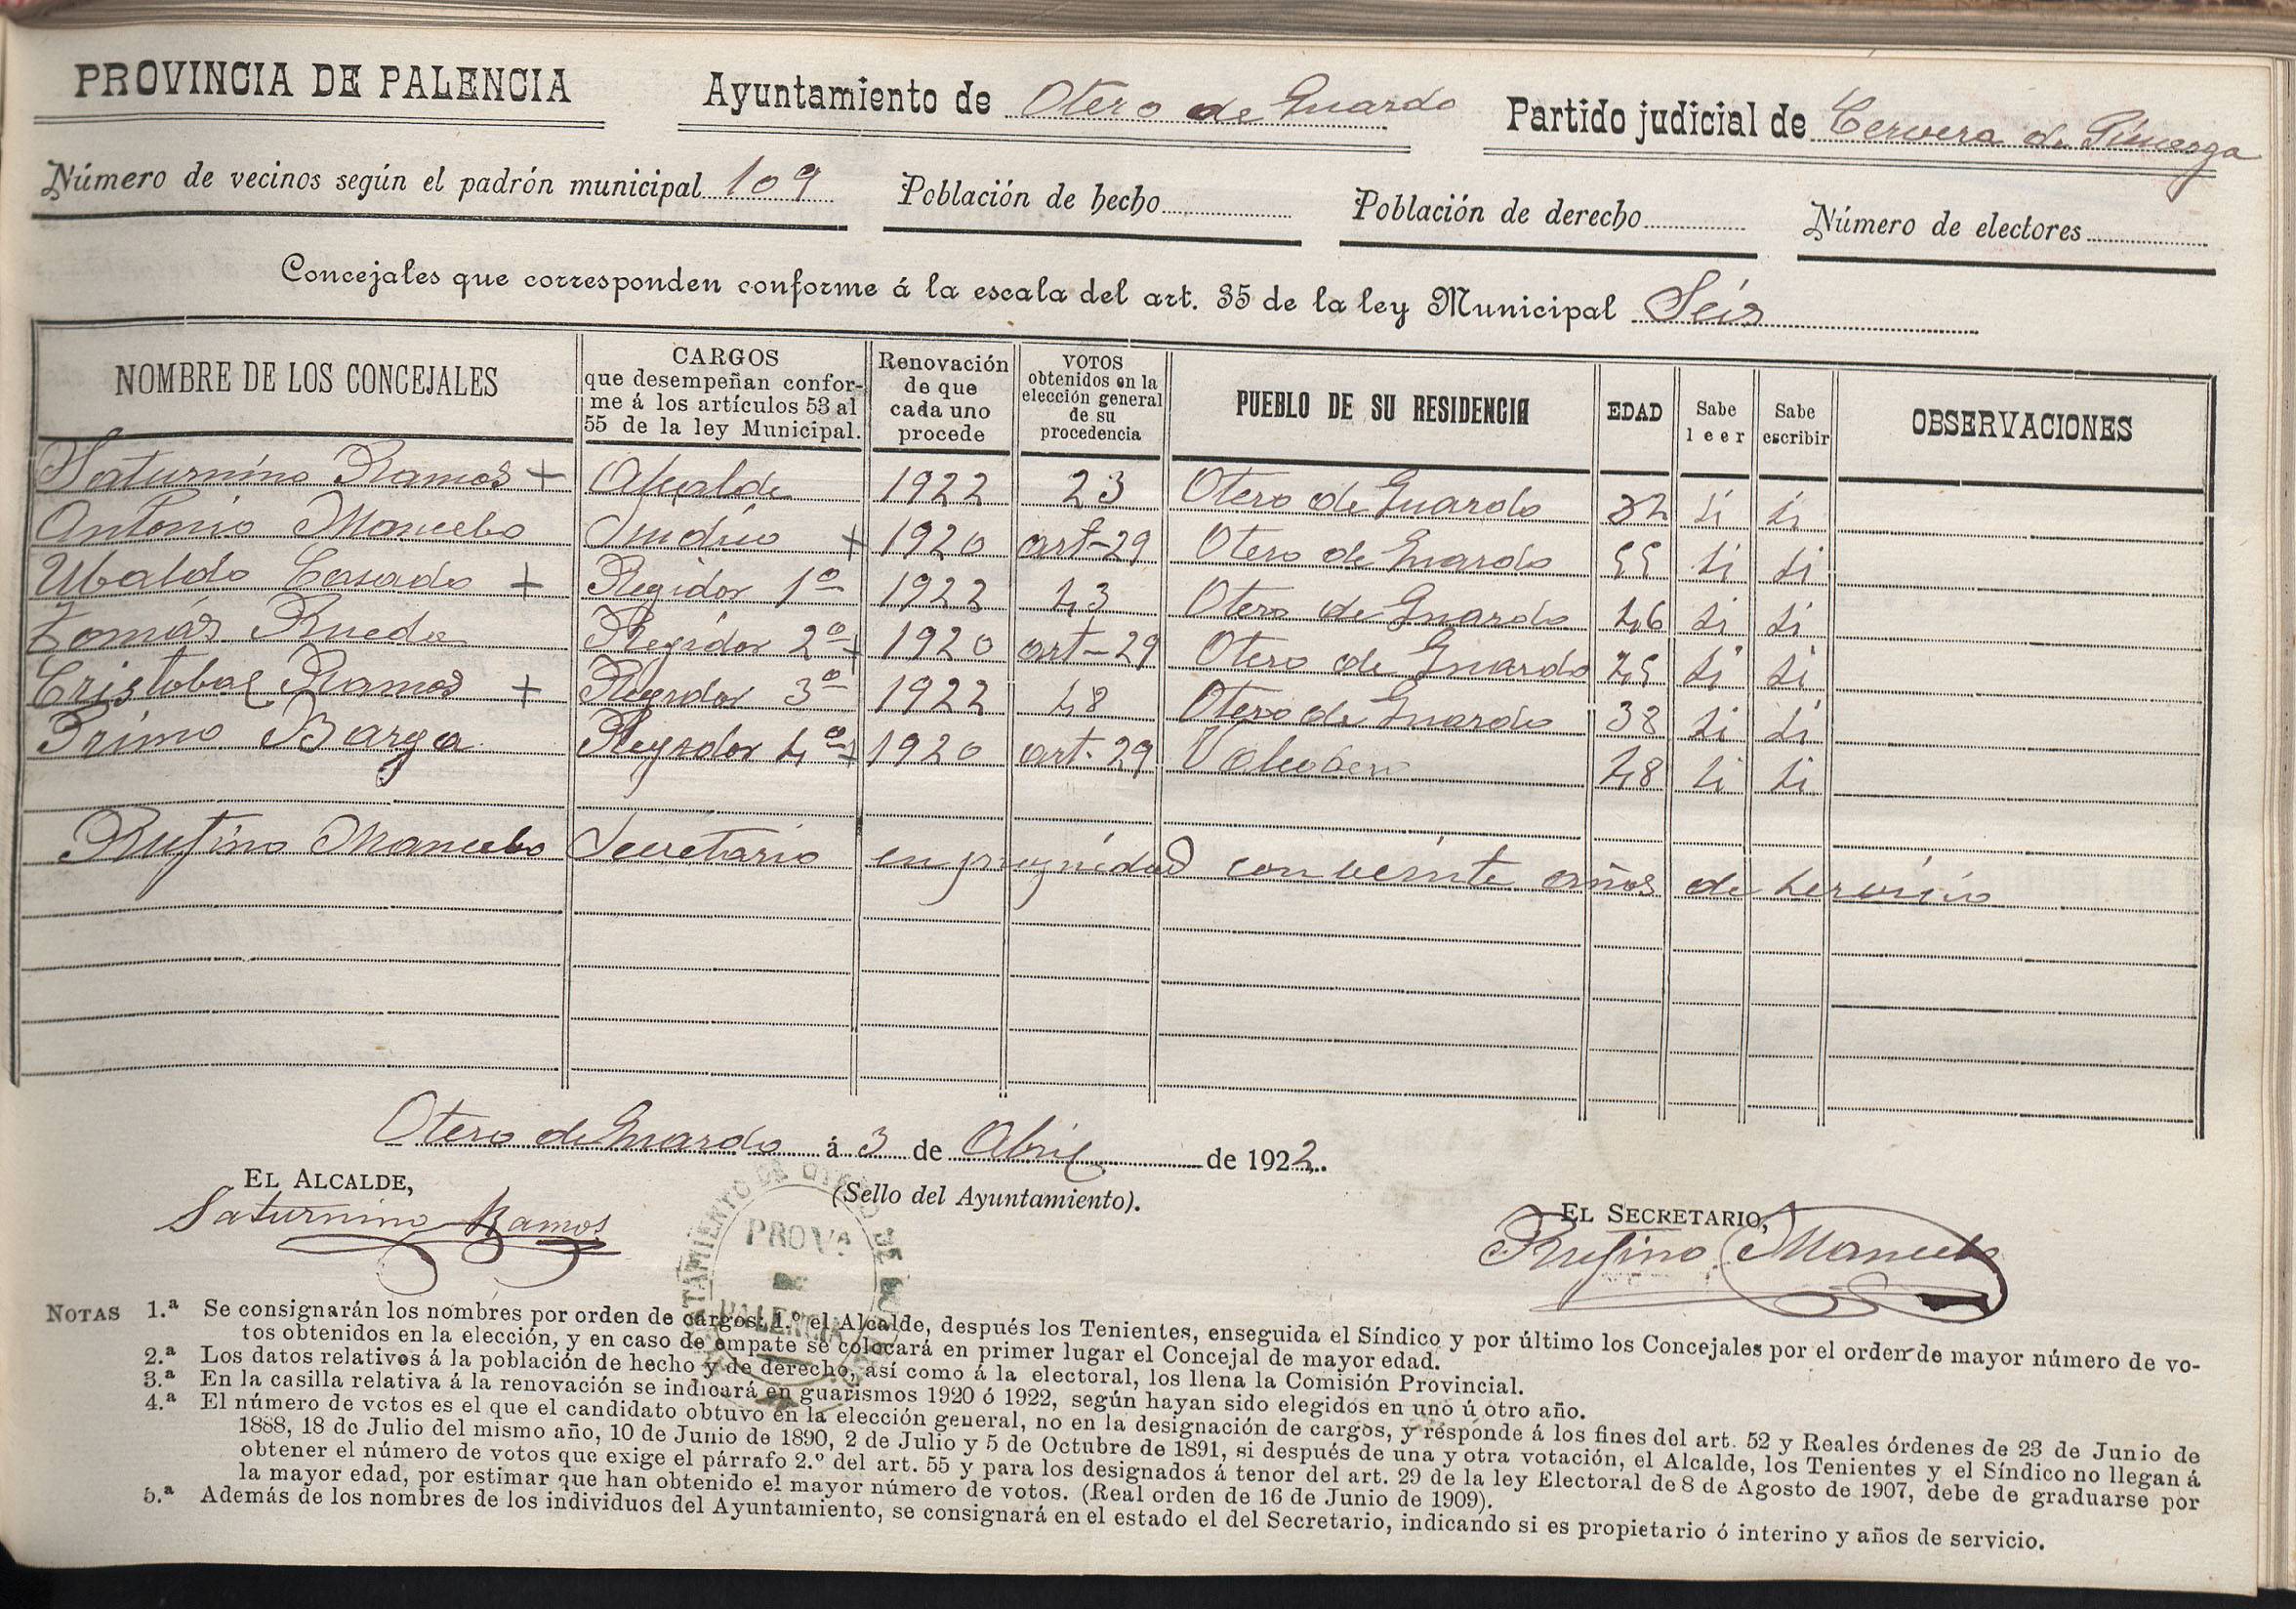 PROVINCIA DE PALENCIA Ayuntamiento de Otero de Guardo Partido judicial de Cervera de Pisuerga
Número de vecinos según el padrón municipal 109 Población de hecho Población de derecho Número de electores
Concejales que corresponden conforme á la escala del art. 35 de la ley Municipal Seis
NOMBRE DE LOS CONCEJALES CARGOS que desempeñan confor- me á los artículos 53 al 55 de la ley Municipal. Renovación de que cada uno procede VOTOS obtenidos en la elección general de su procedencia PUEBLO DE SU RESIDENCIA EDAD Sabe leer Sabe escribir OBSERVACIONES
Saturnino Ramos + Alcalde 1922 23 Otero de Guardo 32 si si
Antonio Mancebo Sindico + 1920 art-29 Otero de Guardo 55 si si
Ubaldo Casado + Regidor 1º 1922 43 Otero de Guardo 46 si si
Tomás Rueda Regidor 2º + 1920 art-29 Otero de Guardo 45 si si
Cristobal Ramos + Regidor 3º 1922 48 Otero de Guardo 38 si si
Primo Barga Regidor 4º + 1920 art-29 Valcobero 48 si si
Rufino Mancebo Secretario en propiedad con veinte años de servicio
Otero de Guardo á 3 de Abril de 1922.
EL ALCALDE, (Sello del Ayuntamiento). EL SECRETARIO,
Saturnino Ramos Rufino Mancebo
AYUNTAMIENTO DE OTERO DE GUARDO
PROVª
DE
PALENCIA
NOTAS 1.ª Se consignarán los nombres por orden de cargos: 1.º el Alcalde, después los Tenientes, enseguida el Síndico y por último los Concejales por el orden de mayor número de vo-
tos obtenidos en la elección, y en caso de empate se colocará en primer lugar el Concejal de mayor edad.
2.ª Los datos relativos á la población de hecho y de derecho, así como á la electoral, los llena la Comisión Provincial.
3.ª En la casilla relativa á la renovación se indicará en guarismos 1920 ó 1922, según hayan sido elegidos en uno ú otro año.
4.ª El número de votos es el que el candidato obtuvo en la elección general, no en la designación de cargos, y responde á los fines del art. 52 y Reales órdenes de 23 de Junio de
1888, 18 de Julio del mismo año, 10 de Junio de 1890, 2 de Julio y 5 de Octubre de 1891, si después de una y otra votación, el Alcalde, los Tenientes y el Síndico no llegan á
obtener el número de votos que exige el párrafo 2.º del art. 55 y para los designados á tenor del art. 29 de la ley Electoral de 8 de Agosto de 1907, debe de graduarse por
la mayor edad, por estimar que han obtenido el mayor número de votos. (Real orden de 16 de Junio de 1909).
5.ª Además de los nombres de los individuos del Ayuntamiento, se consignará en el estado el del Secretario, indicando si es propietario ó interino y años de servicio.